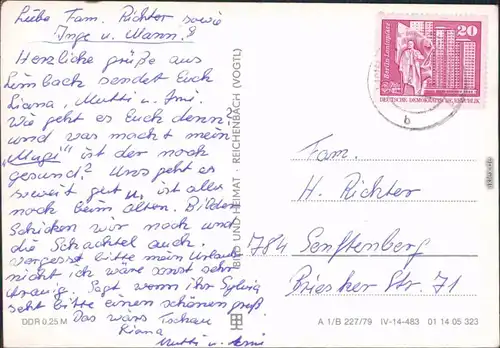 Liebe Fam. Richter sowie
Inge u. Mann.
Herzliche grüße aus
Limbach sendet Euch
Liana, Mutti u.
Wie geht es Euch denn?
und was macht mein
"Mugi" ist der noch
gesund? Uns geht es
soweit gut u. ist alles
noch beim alten. Bilder
schicken wir noch und
die Schachtel auch.
vergesst bitte mein Urlaub
nicht ich wäre sonst sehr
traurig. Sagt wenn ihr Sylvia
seht bitte einen schönen gruß
Das wärs Tschau
Liana
Mutti u.
DDR 0,25 M
BILD UND HEIMAT · REICHENBACH (VOGTL)
Berlin-Leninplatz
20
DEUTSCHE DEMOKRATISCHE REPUBLIK
b
Fam.
H. Richter
784 Senftenberg
Briesker Str. 71
A 1/B 227/79 IV-14-483 01 14 05 323